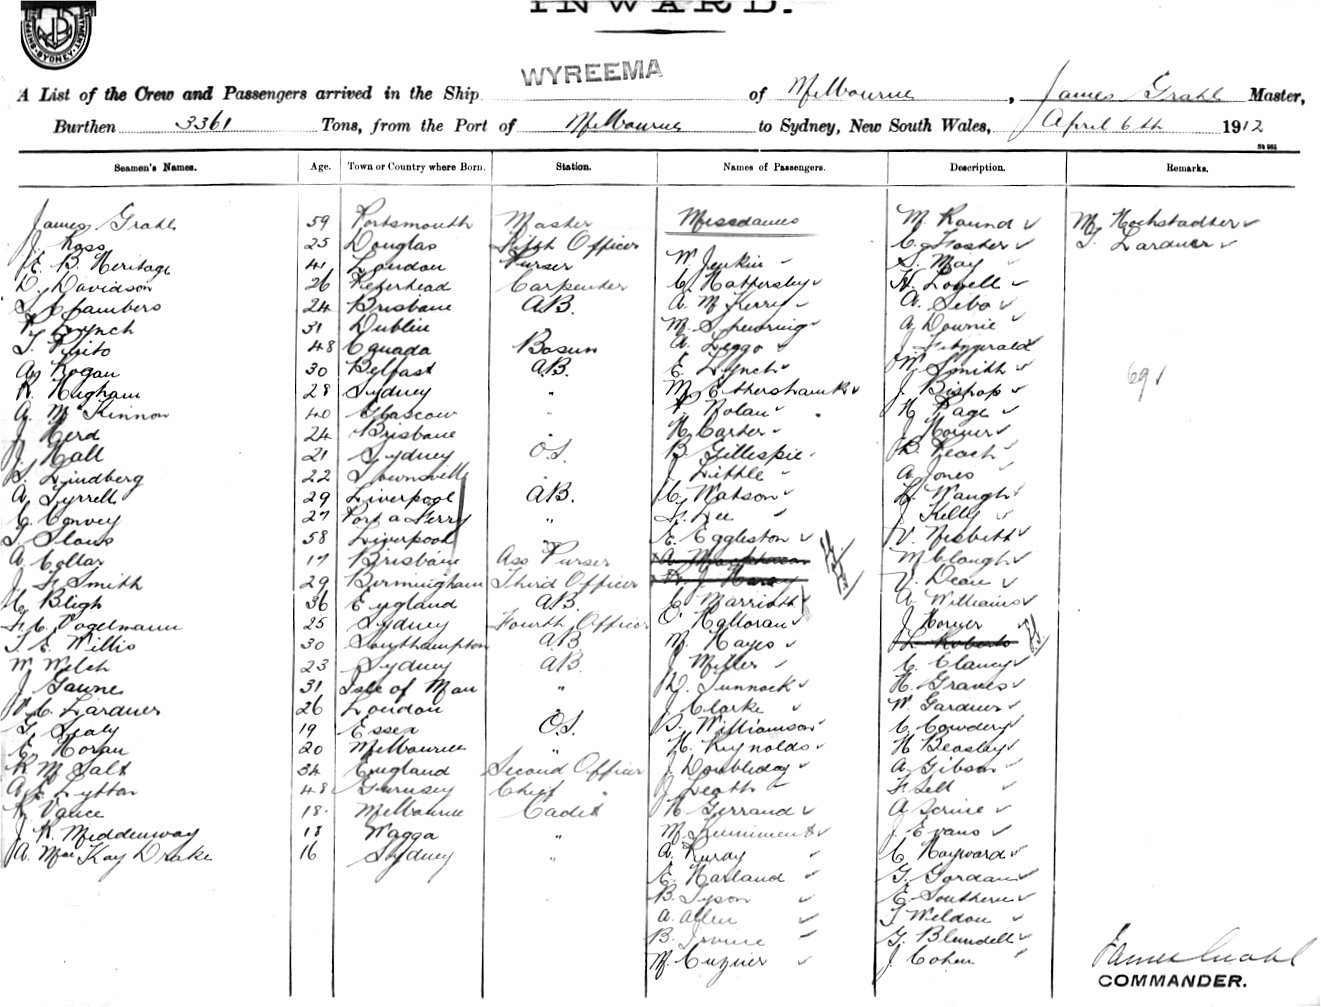 INWARD.
SHIPPING SYDNEY
A List of the Crew and Passengers arrived in the Ship WYREEMA of Melbourne, James Grahl Master,
Burthen 3361 Tons, from the Port of Melbourne to Sydney, New South Wales, April 6th 1912
Seamen's Names. Age. Town or Country where Born. Station. Names of Passengers. Description. Remarks.
James Grahl 59 Portsmouth Master Mesdames M. Round M. Hochstadter
J. Ross 25 Douglas Fifth Officer C. Foster T. Lardner
E. B. Heritage 41 London Purser W. Jenkin S. May
D. Davidson 26 Peterhead Carpenter C. Hattersley H. Lovell
Chambers 24 Brisbane A.B. A. M. Kerry A. Sebo
Lynch 31 Dublin M. Spurring A. Downie
T. 48 Bosun A. Leggo J. Fitzgerald
A. Hogan 30 Belfast A.B. E. Lynch M. Smith
R. Higham 28 Sydney " M. J. Bishop 69
A. McKinnon 40 Glascow " Nolan H. Page
J. Herd 24 Brisbane " H. Carter J. Horner
J. Hall 21 Sydney O.S. B. Gillespie B. Peach
Lindberg 22 Townsville J. Little A. Jones
A. Tyrrell 29 Liverpool A.B. C. Watson L. Waugh
C. Corvey 27 Port a Ferry " F. Lee J. Kelly
T. Slaus 58 Liverpool " E. Eggleston V. Nesbitt
A. Collar 17 Brisbane Ass Purser M. Clough
J. F. Smith 29 Birmingham Third Officer V. Dean
C. Bligh 36 England A.B. C. Marriott A. Williams
F. C. Vogelmann 25 Sydney Fourth Officer O. Halloran J. Horner
T. E. Willis 30 Southampton A.B. M. Hayes L. Roberts
W. Welch 23 Sydney A.B. J. Miller C. Clancy
J. Gawne 31 Isle of Man " D. Tunnock H. Graves
C. Lardner 26 London J. Clarke W. Gardner
G. Sealy 19 Essex O.S. D. Williamson C. Cowdery
E. Horan 20 Melbourne " H. Reynolds H. Beasley
R. M. Salt 34 England Second Officer J. Doubleday A. Gibson
A. E. Lytton 48 Guernsey Chief " J. Leath F. Sell
Vance 18 Melbourne Cadet H. Gerrand A. Scrine
J. R. Meddenway 18 Wagga " M. Kenniment J. Evans
A. MacKay Drake 16 Sydney " A. Purdy C. Hayward
E. Harland G. Gordan
B. Tyson E. Southern
A. Allen T. Weldon
B. Irvine G. Blundell
M. Cuzner J. Cohen
James Grahl
COMMANDER.